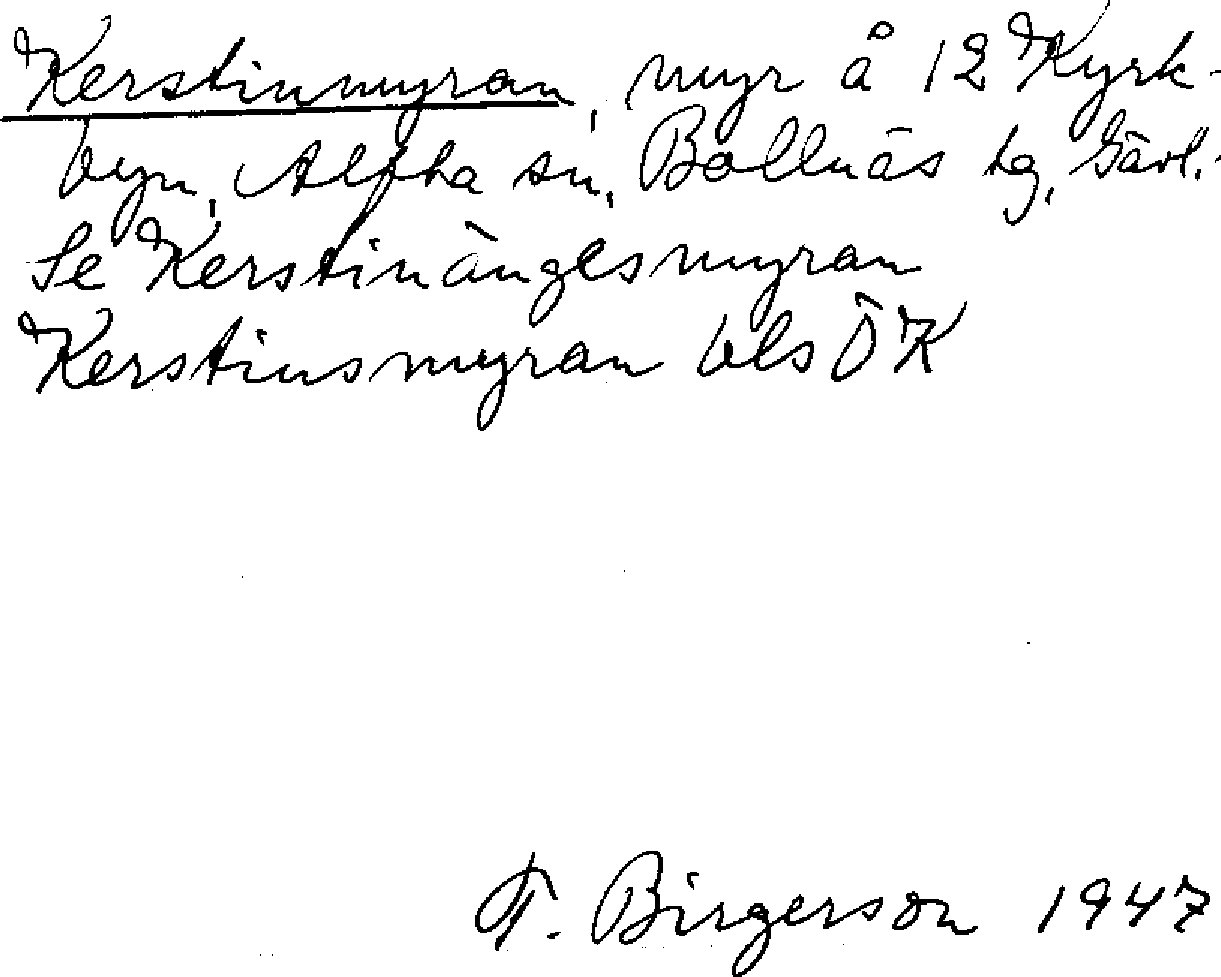 Kerstinmyran, myr å 12 Kyrk-
byn, Alfta sn, Bollnäs tg, Gävl.
Se Kerstinängesmyran
Kerstinsmyran bls ÖK
T. Birgerson 1947